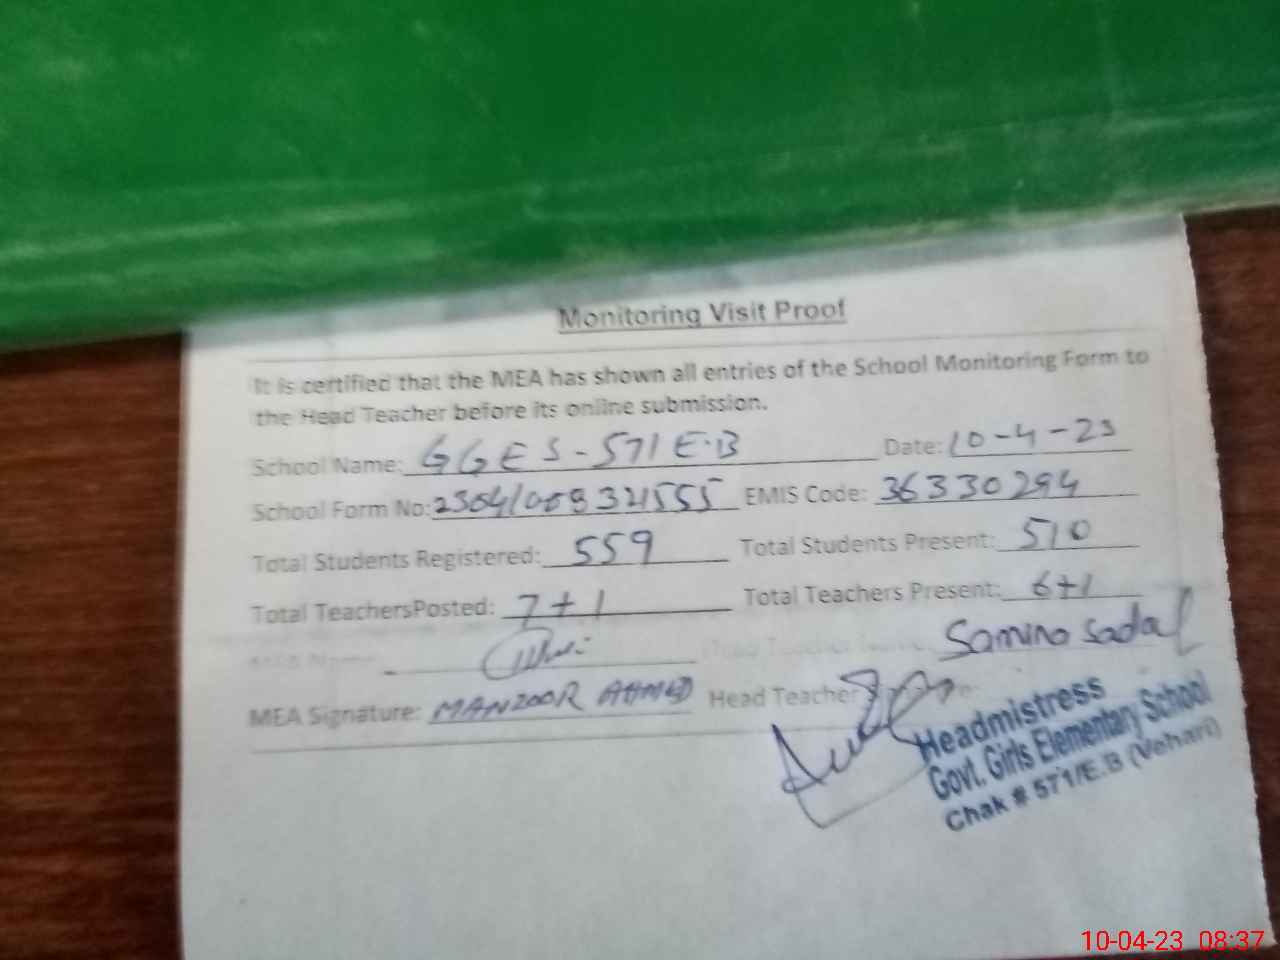 Monitoring Visit Proof
It is certified that the MEA has shown all entries of the School Monitoring Form to
the Head Teacher before its online submission.
School Name: GGES-571E.B Date: 10-4-23
School Form No: EMIS Code: 36330294
Total Students Registered: 559 Total Students Present: 510
Total TeachersPosted: 7+1 Total Teachers Present: 6+1
MEA Name Head Teacher Name
MEA Signature: MANZOOR AHMED Head Teacher
Headmistress
Govt. Girls Elementary School
Chak # 571/E.B (Vehari)
10-04-23 08:37